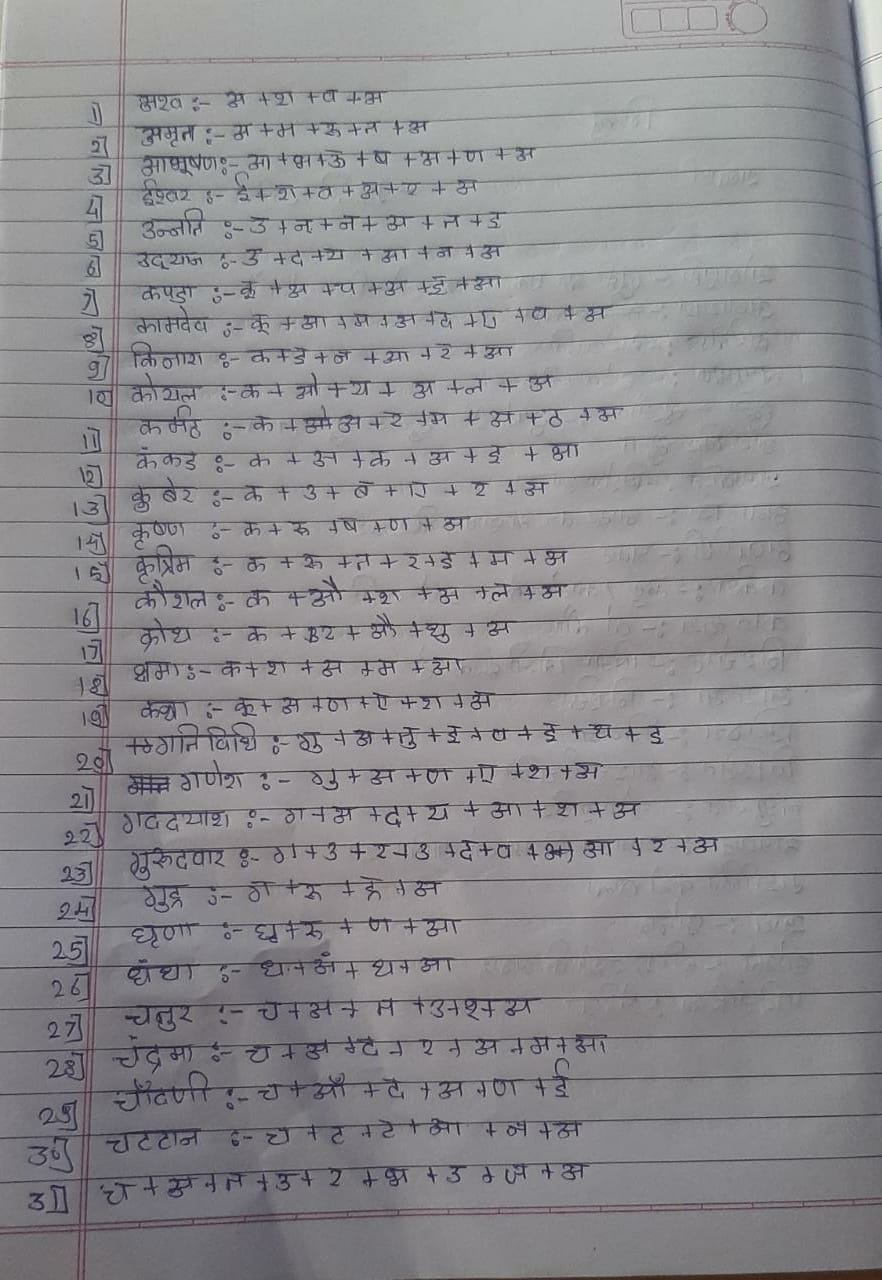 1] अश्व :- अ + श + व + अ
2] अमृत :- अ + म + ऋ + त + अ
3] आभूषण :- आ + भ + ऊ + ष + अ + ण + अ
4] ईश्वर :- ई + श + व + अ + र + अ
5] उन्नति :- उ + न + न + अ + त + इ
6] उद्यान :- उ + द + य + आ + न + अ
7] कपडा :- क् + अ + प + अ + ड़ + आ
8] कामदेव :- क् + आ + म + अ + द + ए + व + अ
9] किनारा :- क + इ + न + आ + र + आ
10] कोयल :- क + ओ + य + अ + ल + अ
11] कर्मठ :- क + अ + र + म + अ + ठ + अ
12] कंकड :- क + अ + क + अ + ड़ + आ
13] कुबेर :- क + उ + ब + ए + र + अ
14] कृष्ण :- क + ऋ + ष + ण + अ
15] कृत्रिम :- क + ऋ + त + र + इ + म + अ
16] कौशल :- क + औ + श + अ + ल + अ
17] क्रोध :- क + र + औ + ध् + अ
18] क्षमा :- क + श + अ + म + आ
19] :- क् + अ + ण + ऐ + श + अ
20] गतिविधि :- ग् + अ + त् + इ + व + इ + ध + इ
21] गणेश :- ग् + अ + ण + ए + श + अ
22] गददयाश :- ग + अ + द + य + आ + श + अ
23] गुरुदवार :- ग + उ + र + उ + द + व + आ + र + अ
24] :- ग + ऋ + ह + अ
25] घृणा :- घ् + ऋ + ण + आ
26] धंधा :- ध + अं + ध + आ
27] चतुर :- च + अ + त + उ + र + अ
28] चंद्रमा :- च + अ + द + र + अ + म + आ
29] चाँदणी :- च + आँ + द + अ + ण + ई
30] चटटान :- च + ट + ट + आ + न + अ
31] च + अ + त + उ + र + भ + उ + ज + अ